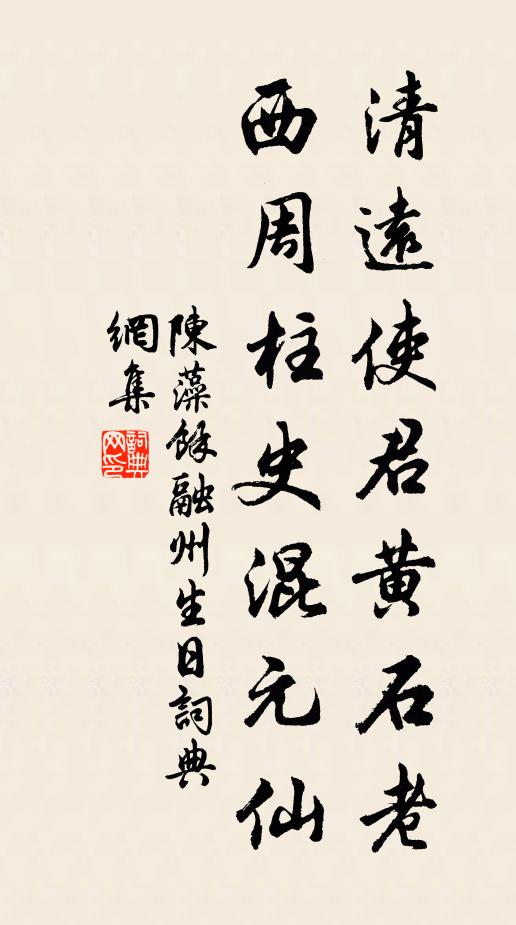 清遠使君黄石老
西周柱史混元仙
陳藻餘融州生日詞典
網集
詞典
网印